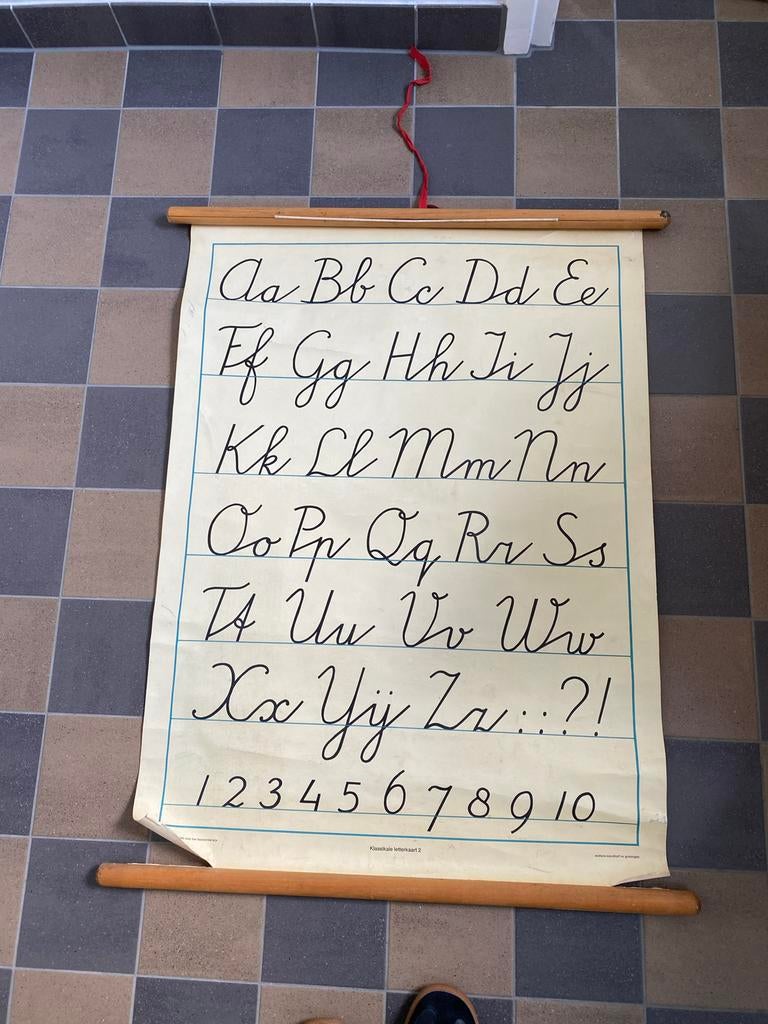 Aa Bb Cc Dd Ee
Ff Gg Hh Ii Jj
Kk Ll Mm Nn
Oo Pp Qq Rr Ss
Tt Uu Vv Ww
Xx Yij Zz . : ; ? !
1 2 3 4 5 6 7 8 9 10
Klassikale letterkaart 2
wolters-noordhoff nv groningen